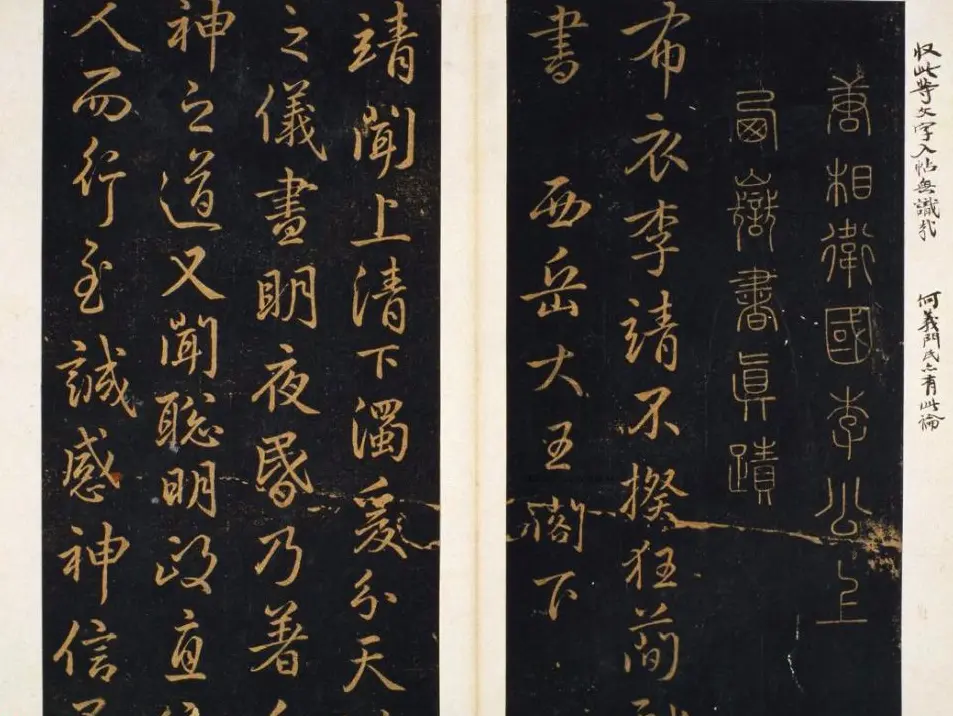 収此等文字入帖無識
何義門氏亦有此論
唐相衛國李公上
西嶽書真蹟
布衣李靖不揆狂簡
書 西岳大王閣下
靖聞上清下濁爰分天
之儀晝明夜昏乃著
神之道又聞聰明政直
人而行至誠感神信